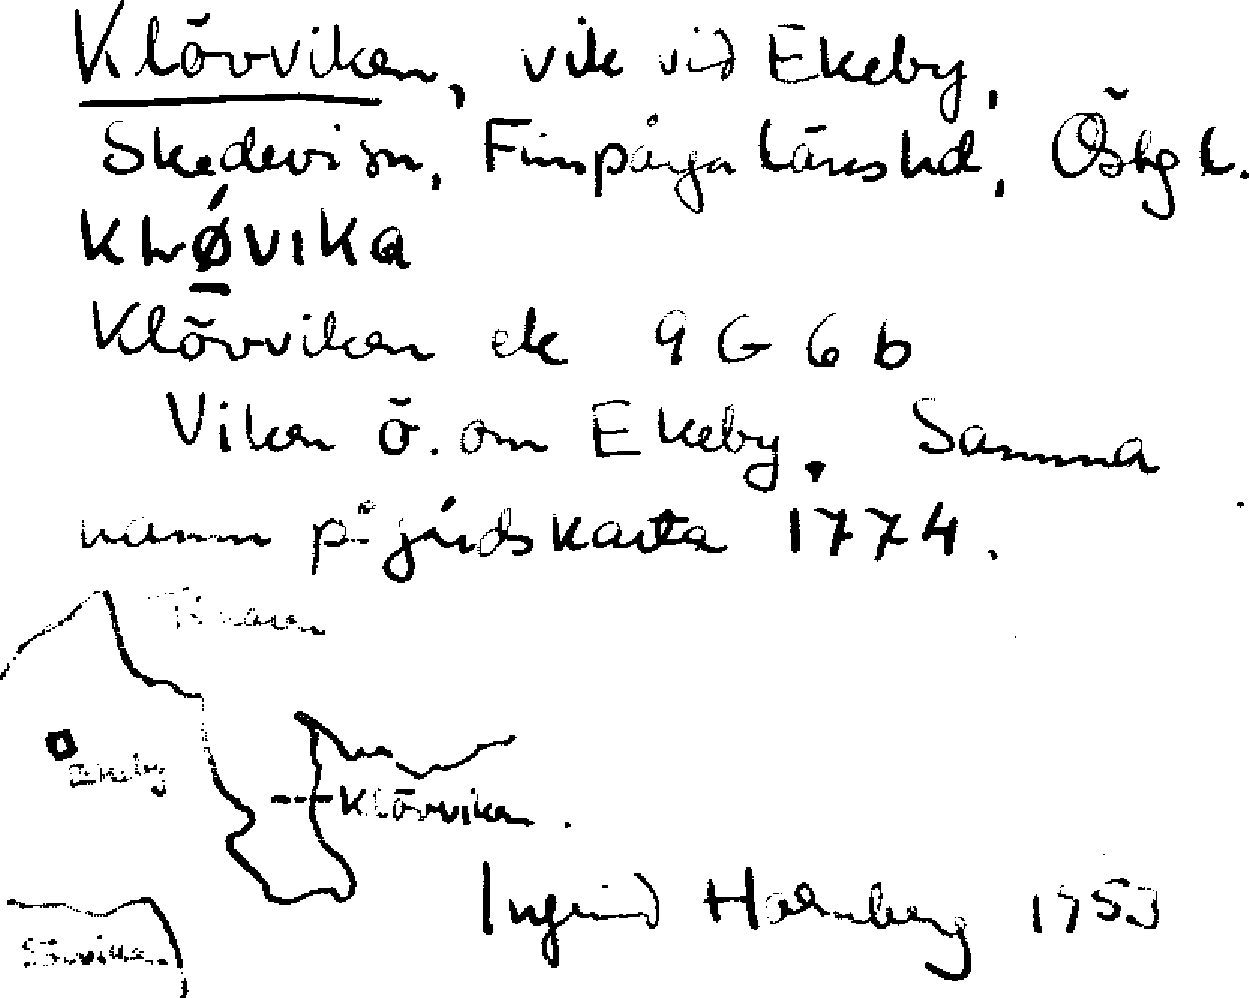 Klövviken, vik vid Ekeby,
Skedevi sn, Finspånga läns hd, Östgl.
KLØVIKA
Klövviken ek 9 G 6 b
Viken ö. om Ekeby. Samma
namn på jordskarta 1774.
Ekeby
Klövviken.
Ingrid Holmberg 1953